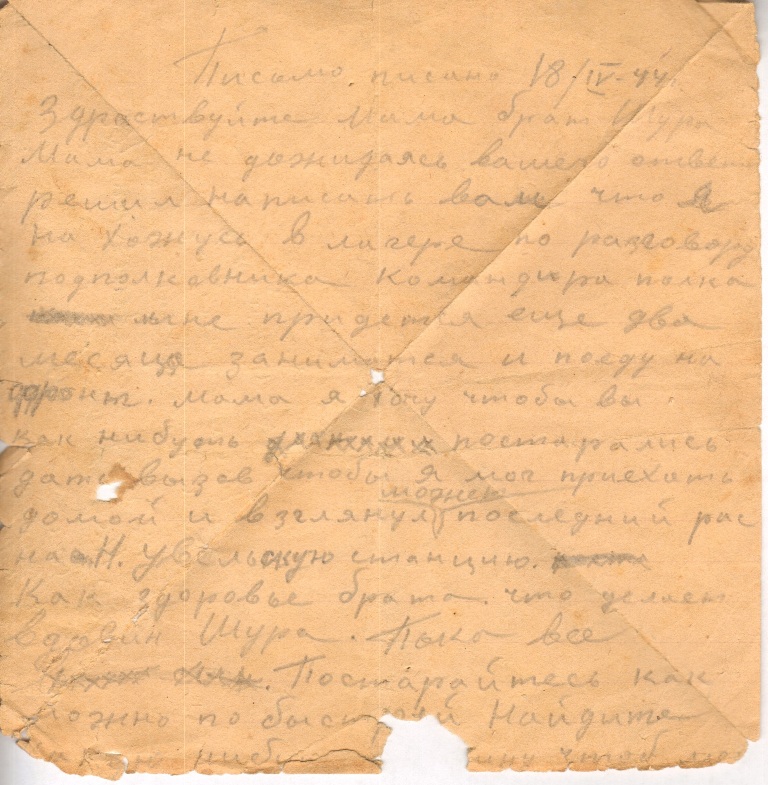 Письмо. писано 18/IV-44
Здраствуйте мама брат Шура
Мама не дожидаясь вашего ответа
решил написать вам что я
на хожусь в лагере по разговору
подполковника командира полка
мне придется еще два
месяца заниматся и поеду на
фронт. мама я хочу чтобы вы
как нибудь постарались
дать вызов чтобы я мог приехать
можеть
домой и взглянул последний рас
на Н. Увельскую станцию.
Как здоровье брата. что делает
Шура. Пока все
Постарайтесь как
можно по быстрей Найдите
нибу чтоб